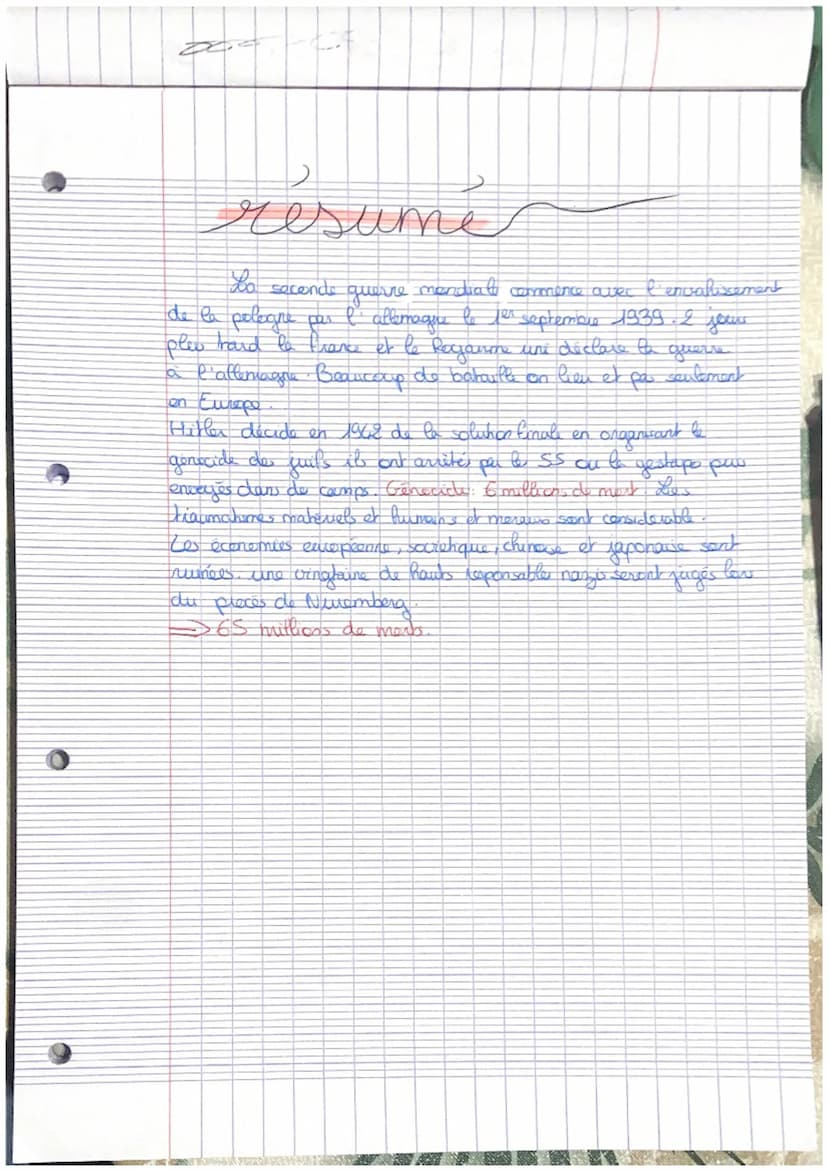 résumé
La seconde guerre mondiale commence avec l'envahissement
de la pologne par l'allemagne le 1er septembre 1939. 2 jours
plus tard la france et le Royaume uni déclare la guerre
à l'allemagne. Beaucoup de bataille on lieu et pas seulement
en Europe.
Hitler décide en 1942 de la solution finale en organisant le
génocide des juifs ils ont arrités par le SS ou la gestapo puis
envoyés dans de camps. Génocide: 6 millions de mort Les
traumatismes matériels et humains et moraux sont considérable.
Les économies européenne, soviétique, chinoise et japonaise sont
ruinées. une vingtaine de hauts responsable nazis seront jugés lors
du procès de Nuremberg.
=> 65 millions de morts.